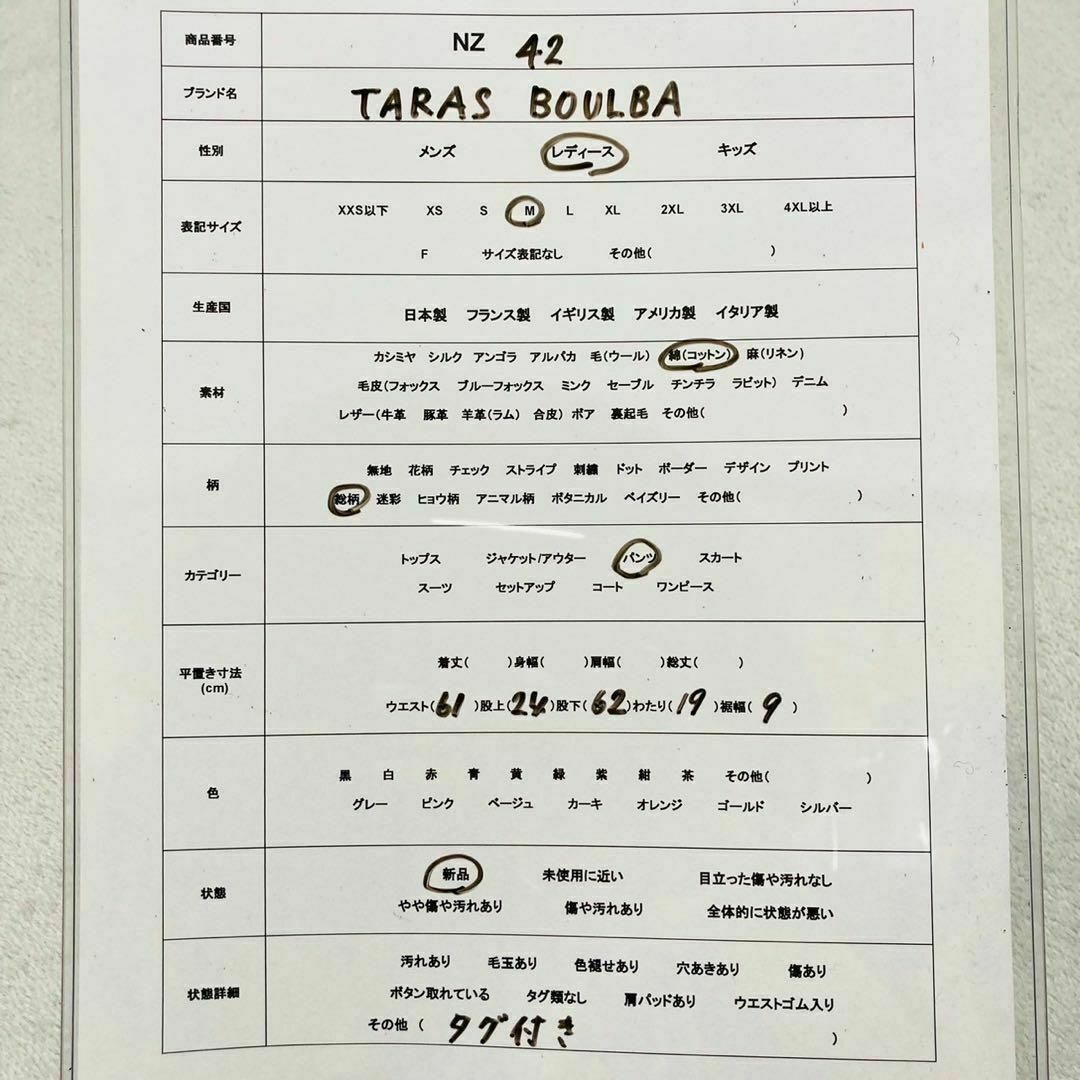 商品番号 NZ 42
ブランド名 TARAS BOULBA
性別 メンズ レディース キッズ
表記サイズ
XXS以下 XS S M L XL 2XL 3XL 4XL以上
F サイズ表記なし その他( )
生産国 日本製 フランス製 イギリス製 アメリカ製 イタリア製
素材
カシミヤ シルク アンゴラ アルパカ 毛(ウール) 綿(コットン) 麻(リネン)
毛皮(フォックス ブルーフォックス ミンク セーブル チンチラ ラビット) デニム
レザー(牛革 豚革 羊革(ラム) 合皮) ボア 裏起毛 その他( )
柄
無地 花柄 チェック ストライプ 刺繍 ドット ボーダー デザイン プリント
総柄 迷彩 ヒョウ柄 アニマル柄 ボタニカル ペイズリー その他( )
カテゴリー
トップス ジャケット/アウター パンツ スカート
スーツ セットアップ コート ワンピース
平置き寸法
(cm)
着丈( )身幅( )肩幅( )総丈( )
ウエスト(61)股上(24)股下(62)わたり(19)裾幅(9)
色
黒 白 赤 青 黄 緑 紫 紺 茶 その他( )
グレー ピンク ベージュ カーキ オレンジ ゴールド シルバー
状態
新品 未使用に近い 目立った傷や汚れなし
やや傷や汚れあり 傷や汚れあり 全体的に状態が悪い
状態詳細
汚れあり 毛玉あり 色褪せあり 穴あきあり 傷あり
ボタン取れている タグ類なし 肩パッドあり ウエストゴム入り
その他 ( タグ付き )